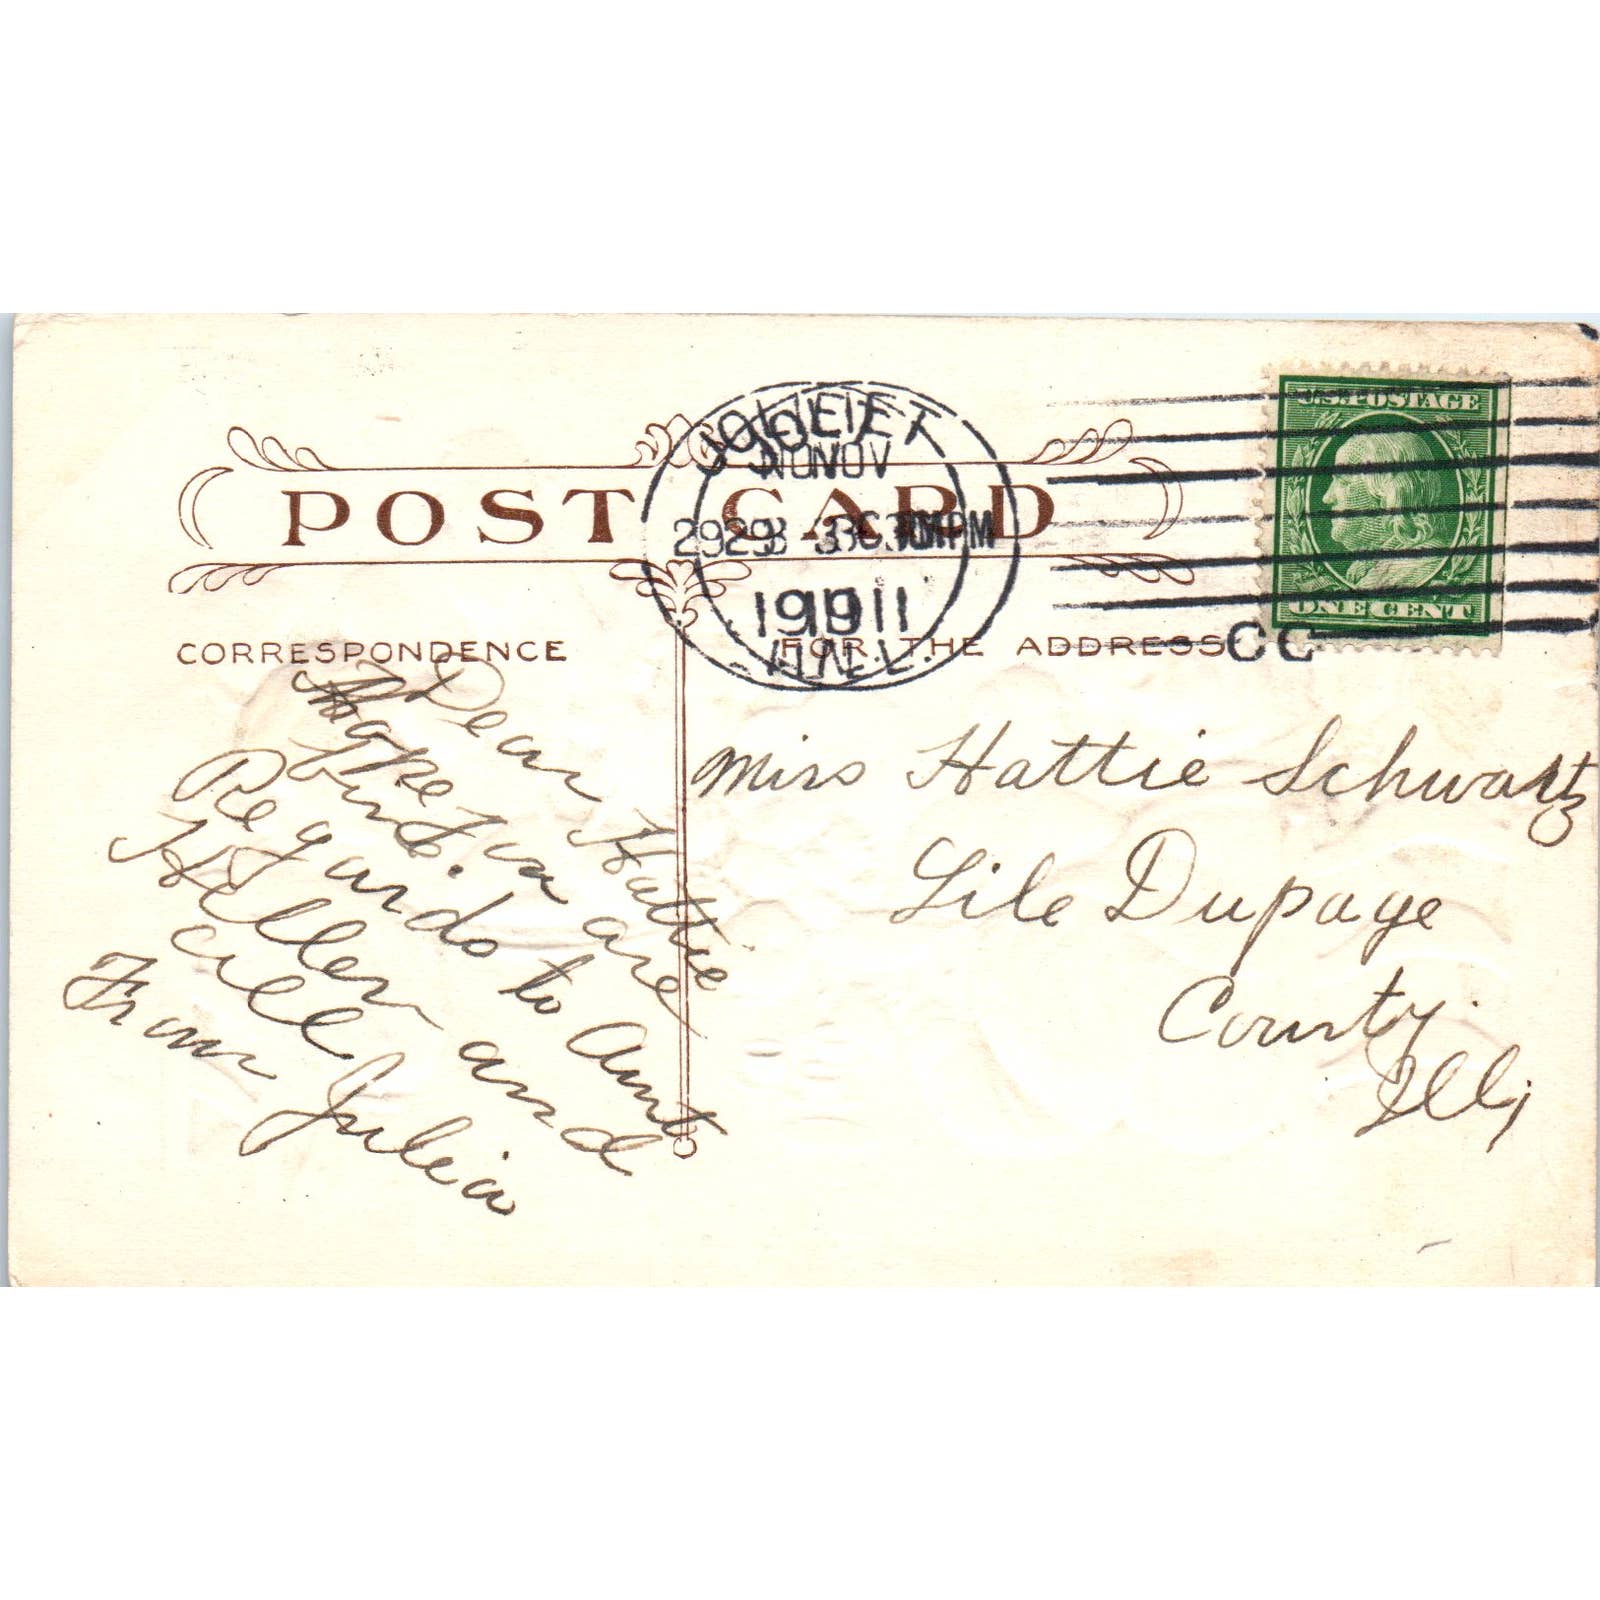 POST CARD
JOLIET
NOV
29
1911
ILL.
U.S. POSTAGE
ONE CENT
CORRESPONDENCE
FOR THE ADDRESS
CC
Dear Hattie
Hope you are
Regards to Aunt
Hellen and
all
From Julia
Miss Hattie Schwartz
Lile Dupage
County.
Ill,